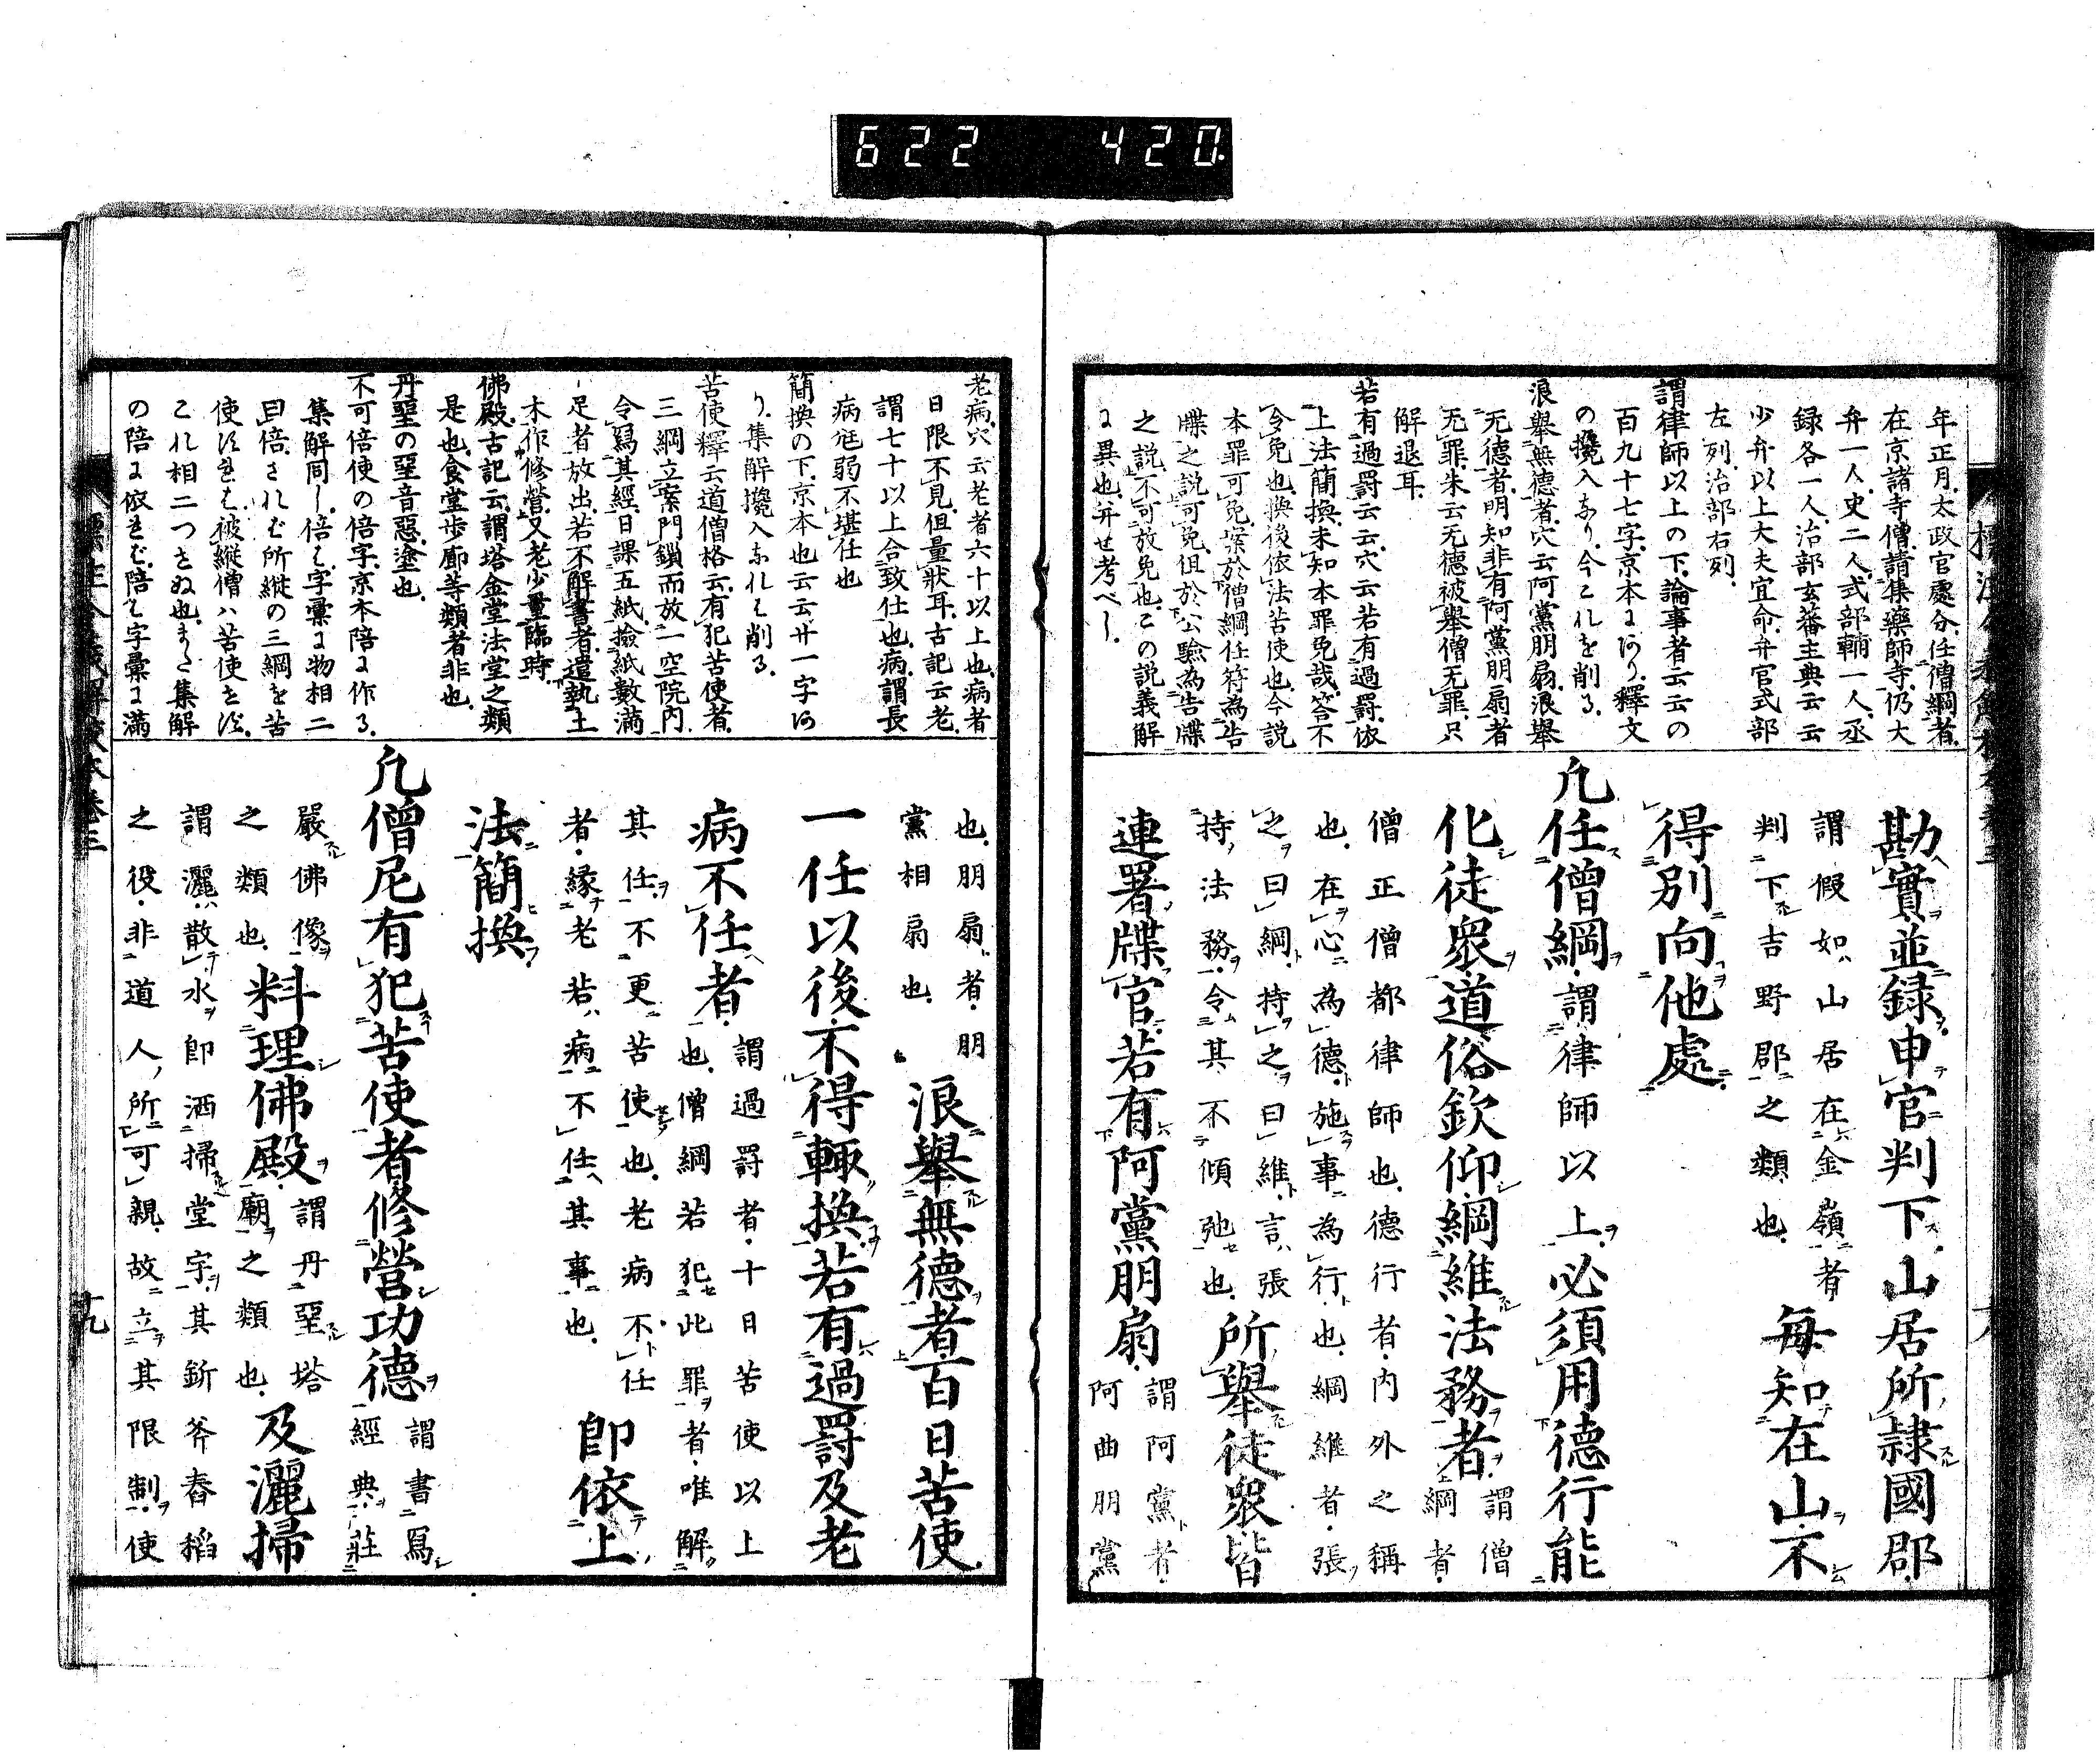 622 420
年正月太政官處分任僧綱者
在京諸寺僧請集藥師寺仍大
弁一人史二人式部輔一人丞
録各一人治部玄蕃主典云云
少弁以上大夫宜命弁官式部
左列治部右列
謂律師以上の下論事者云云の
百九十七字京本にあり釋文
の攙入なり今これを削る
浪舉無德者穴云阿黨朋扇浪舉
无德者明知非有阿黨朋扇者
无罪朱云无德被舉僧无罪只
解退耳
若有過罸云云穴云若有過罸依
上法簡換未知本罪免哉答不
令免也換後依法苦使也今説
本罪可免案於僧綱任符為告
牒之説可免但於公驗為告牒
之説不可放免也この説義解
に異也并せ考べし
勘實並録申官判下山居所隷國郡
謂假如山居在金嶺者
判下吉野郡之類也
每知在山不
得別向他處
凡任僧綱謂律師以上必須用德行能
化徒衆道俗欽仰綱維法務者謂僧
綱者
僧正僧都律師也德行者內外之稱
也在心為德施事為行也綱維者張
之曰綱持之曰維言張
持法務令其不傾弛也
所舉徒衆皆
連署牒官若有阿黨朋扇謂阿黨者
阿曲朋黨
老病穴云老者六十以上也病者
日限不見但量狀耳古記云老
謂七十以上合致仕也病謂長
病尫弱不堪仕也
簡換の下京本也云云廿一字あ
り集解攙入なれは削る
苦使釋云道僧格云有犯苦使者
三綱立案門鎖而放一空院內
令寫其經日課五紙撿紙數滿
足者放出若不解書者遣執土
木作修營又老少量臨時
佛殿古記云謂塔金堂法堂之類
是也食堂步廊等類者非也
丹堊の堊音惡塗也
不可倍使の倍字京本陪に作る
集解同し倍は字彙に物相二
曰倍されど所縱の三綱を苦
使ほきは被縱僧ハ苦使せは
これ相二つさぬ也また集解
の陪に依きは陪は字彙に滿
也朋扇者朋
黨相扇也
浪舉無德者百日苦使
一任以後不得輙換若有過罸及老
病不任者謂過罸者十日苦使以上
也僧綱若犯此罪者唯解
其任不更苦使也老病不任
者緣老若病不任其事也
即依上
法簡換
凡僧尼有犯苦使者修營功德謂書寫
經典莊
嚴佛像
之類也
料理佛殿謂丹堊塔
廟之類也
及灑掃
謂灑散水即洒掃堂宇其斫斧舂稻
之役非道人所可親故立其限制使
十九